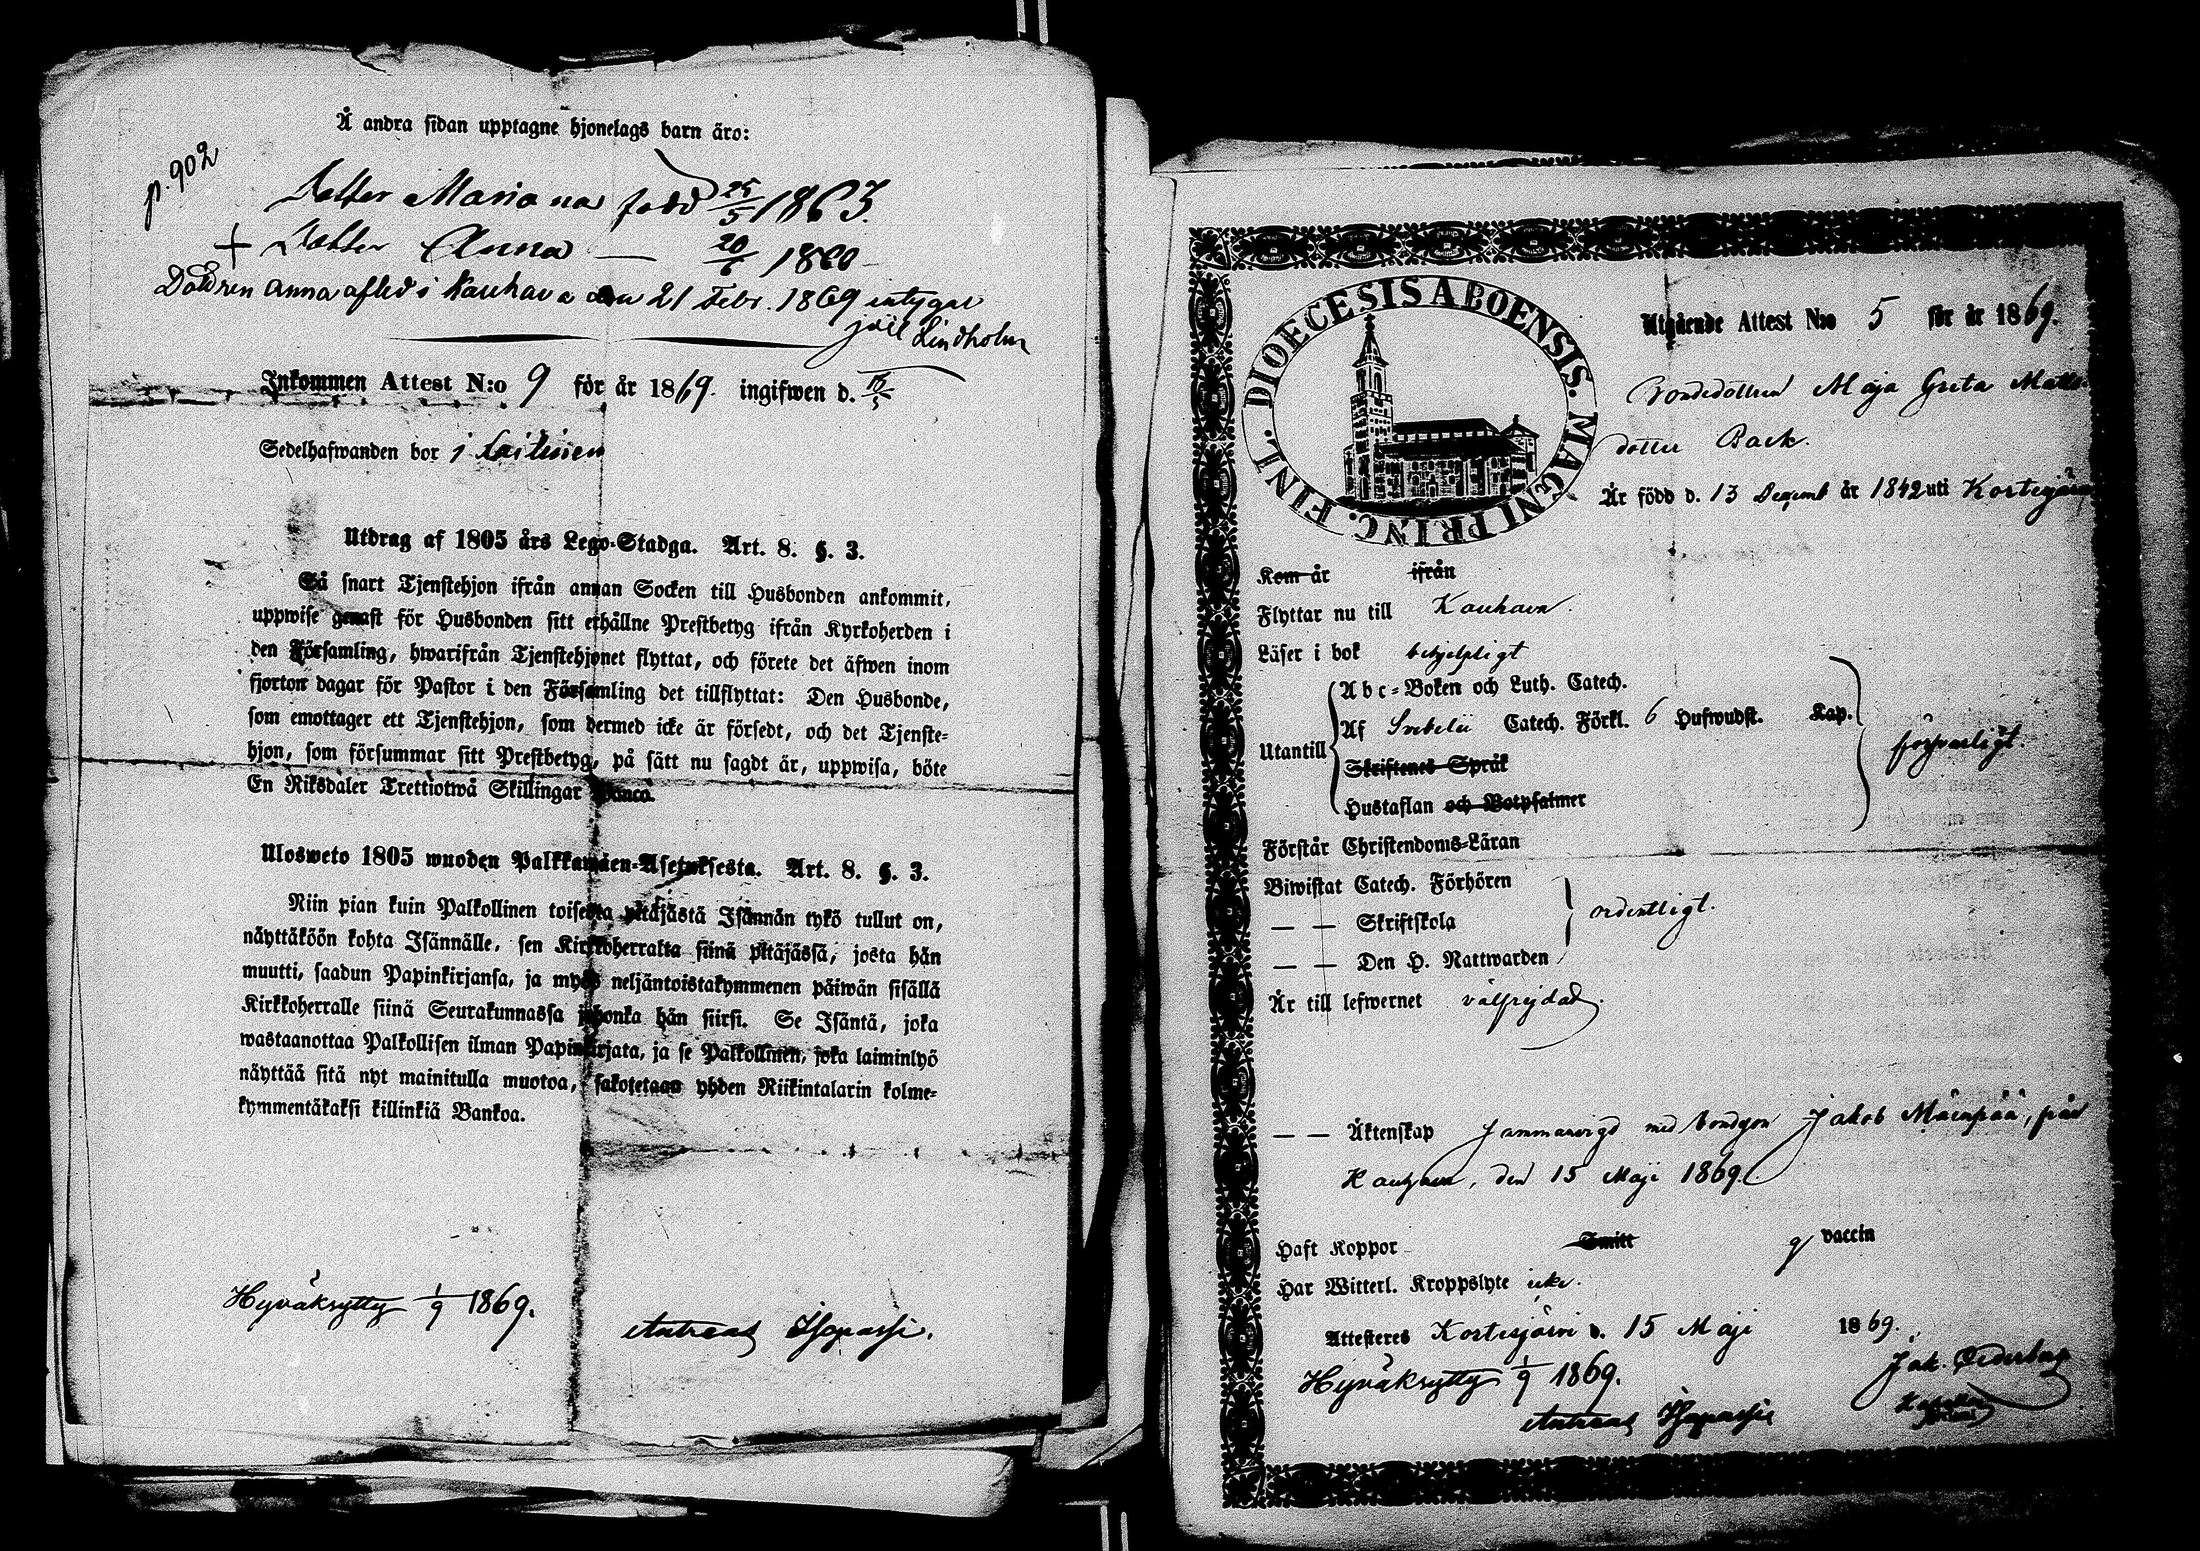 p. 902
Å andra sidan upptagne hjonelags barn äro:
Dotter Mariana född 25/5 1863.
+ Dotter Anna — 20/6 1860
Dottren anna afled i Kauhava den 21 Febr. 1869 intygar
joel Lindholm
Inkommen Attest N:o 9 för år 1869. ingifwen d.
Sedelhafwanden bor i
Utdrag af 1805 års Lego-Stadga. Art. 8. §. 3.
Så snart Tjenstehjon ifrån annan Socken till Husbonden ankommit,
uppwise genast för Husbonden sitt erhållne Prestbetyg ifrån Kyrkoherden i
den Församling, hwarifrån Tjenstehjonet flyttat, och förete det äfwen inom
fjorton dagar för Pastor i den Församling det tillflyttat: Den Husbonde,
som emottager ett Tjenstehjon, som dermed icke är försedt, och det Tjenste-
hjon, som försummar sitt Prestbetyg, på sätt nu sagdt är, uppwisa, böte
En Riksdaler Trettiotwå Skillingar Banco.
Ulosweto 1805 wuoden Palkkawäen-Asetuksesta. Art. 8. §. 3.
Niin pian kuin Palkollinen toisesta pitäjästä Isännän tykö tullut on,
näyttäköön kohta Isännälle, sen Kirkkoherralta siinä pitäjässä, josta hän
muutti, saadun Papinkirjansa, ja myös neljäntoistakymmenen päiwän sisällä
Kirkkoherralle siinä Seurakunnassa johonka hän siirsi. Se Isäntä, joka
wastaanottaa Palkollisen ilman Papinkirjata, ja se Palkollinen, joka laiminlyö
näyttää sitä nyt mainitulla muotoa, sakotetaan yhden Riikintalarin kolme-
kymmentäkaksi killinkiä Bankoa.
Hyväksytty 1/9 1869.
Antreas Isopassi.
DIOECESIS ABOENSIS. MAGNI PRINC. FINL.
Utgående Attest N:o 5 för år 1869.
Bondedottren Maja Greta Matts
dotter Back.
Är född d. 13 Decemb år 1842 uti Kortesjärvi
Kom år ifrån
Flyttar nu till Kauhava.
Läser i bok behjelpligt
Utantill
Abc-Boken och Luth. Catech.
Af Svebelii Catech. Förkl. 6 Hufwudst. Kap.
Skriftenes Språk
Hustaflan och Botpsalmer
försvarligt.
Förstår Christendoms-Läran
Biwistat Catech. Förhören
— — Skriftskola
— — Den H. Nattwarden
ordentligt.
Är till lefwernet välfrejdad.
— — Äktenskap sammanvigd med bondson Jakob Mäenpää, från
Kauhava, den 15 Maji 1869.
Haft Koppor Smitt g vaccin
Har Witterl. Kroppslyte icke.
Attesteres Kortesjärvi d. 15 Maji 1869.
Hyväksytty 1/9 1869.
Jak. Cederberg
Antreas Isopassi